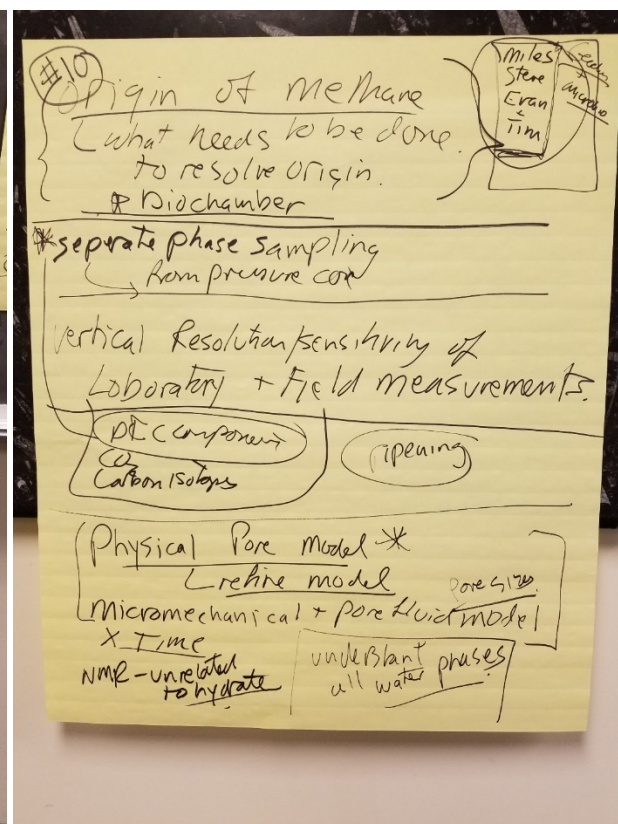 #10
Origin of methane
What needs to be done
to resolve origin.
* Biochamber
Miles
Steve
Evan
+
Tim
Geochem
+
microbio
* seperate phase sampling
from pressure core
Vertical Resolution/sensitivity of
Laboratory + Field measurements.
DIC component
CO2
Carbon isotopes
ripening
Physical Pore Model *
refine model
pore sizes
Micromechanical + pore fluid model
X Time
NMR - unrelated
to hydrate
understant
all water phases